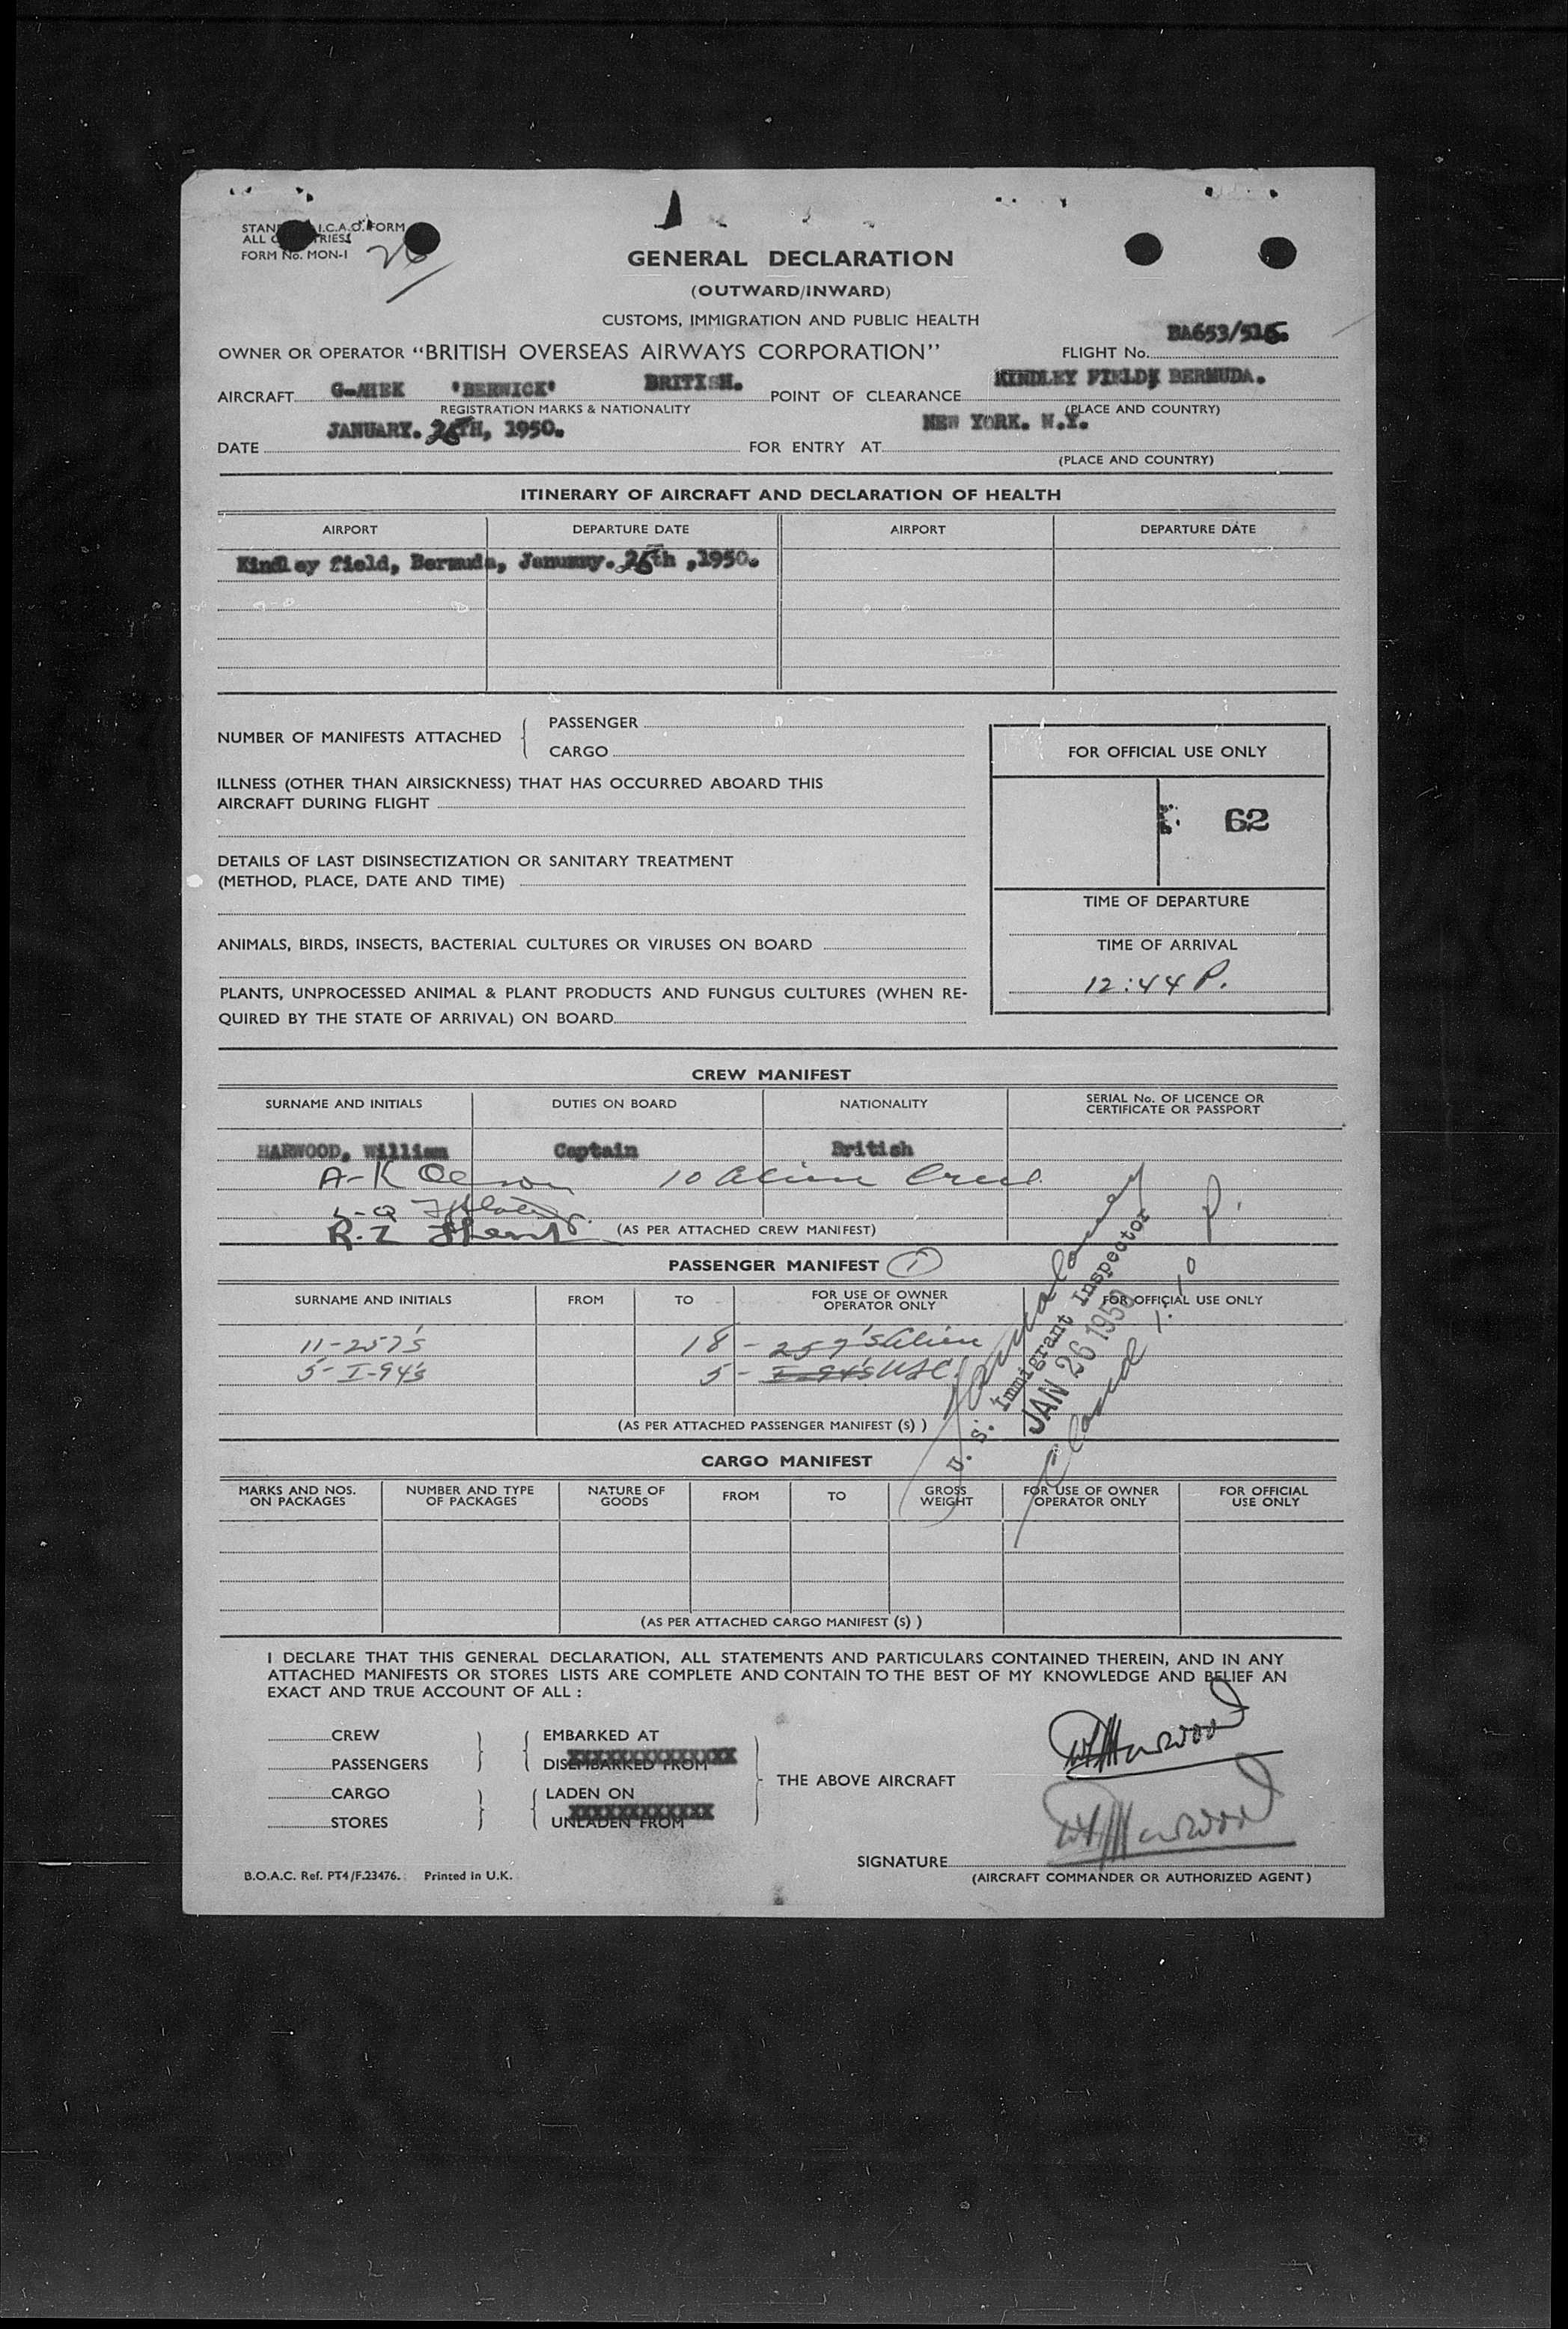 GENERAL DECLARATION
(OUTWARD/INWARD)
CUSTOMS, IMMIGRATION AND PUBLIC HEALTH
I.C.A.O. FORM
ALL
FORM No. MON-1
OWNER OR OPERATOR "BRITISH OVERSEAS AIRWAYS CORPORATION"
FLIGHT No. BA653/516.
AIRCRAFT 'BERWICK' BRITISH. POINT OF CLEARANCE KINDLEY FIELD, BERMUDA.
REGISTRATION MARKS & NATIONALITY (PLACE AND COUNTRY)
DATE JANUARY. 26TH, 1950. FOR ENTRY AT NEW YORK. N.Y.
(PLACE AND COUNTRY)
ITINERARY OF AIRCRAFT AND DECLARATION OF HEALTH
AIRPORT DEPARTURE DATE AIRPORT DEPARTURE DATE
Kindley field, Bermuda, 26th ,1950.
NUMBER OF MANIFESTS ATTACHED { PASSENGER
CARGO
ILLNESS (OTHER THAN AIRSICKNESS) THAT HAS OCCURRED ABOARD THIS
AIRCRAFT DURING FLIGHT
DETAILS OF LAST DISINSECTIZATION OR SANITARY TREATMENT
(METHOD, PLACE, DATE AND TIME)
ANIMALS, BIRDS, INSECTS, BACTERIAL CULTURES OR VIRUSES ON BOARD
PLANTS, UNPROCESSED ANIMAL & PLANT PRODUCTS AND FUNGUS CULTURES (WHEN RE-
QUIRED BY THE STATE OF ARRIVAL) ON BOARD
FOR OFFICIAL USE ONLY
62
TIME OF DEPARTURE
TIME OF ARRIVAL
12:44 P.
CREW MANIFEST
SURNAME AND INITIALS DUTIES ON BOARD NATIONALITY SERIAL No. OF LICENCE OR
CERTIFICATE OR PASSPORT
HARWOOD, William Captain British
10 Alien Crew
(AS PER ATTACHED CREW MANIFEST)
PASSENGER MANIFEST 1
SURNAME AND INITIALS FROM TO FOR USE OF OWNER
OPERATOR ONLY FOR OFFICIAL USE ONLY
11-257's 18 - 257's Alien
5-I-94's 5 - I-94's USC
(AS PER ATTACHED PASSENGER MANIFEST (S) )
U. S. Immigrant Inspector
JAN 26 1950
1:10 P.
CARGO MANIFEST
MARKS AND NOS.
ON PACKAGES NUMBER AND TYPE
OF PACKAGES NATURE OF
GOODS FROM TO GROSS
WEIGHT FOR USE OF OWNER
OPERATOR ONLY FOR OFFICIAL
USE ONLY
(AS PER ATTACHED CARGO MANIFEST (S) )
I DECLARE THAT THIS GENERAL DECLARATION, ALL STATEMENTS AND PARTICULARS CONTAINED THEREIN, AND IN ANY
ATTACHED MANIFESTS OR STORES LISTS ARE COMPLETE AND CONTAIN TO THE BEST OF MY KNOWLEDGE AND BELIEF AN
EXACT AND TRUE ACCOUNT OF ALL :
CREW EMBARKED AT
PASSENGERS DISEMBARKED FROM
THE ABOVE AIRCRAFT
CARGO LADEN ON
STORES UNLADEN FROM
W Harwood
W Harwood
SIGNATURE
(AIRCRAFT COMMANDER OR AUTHORIZED AGENT)
B.O.A.C. Ref. PT4/F.23476. Printed in U.K.